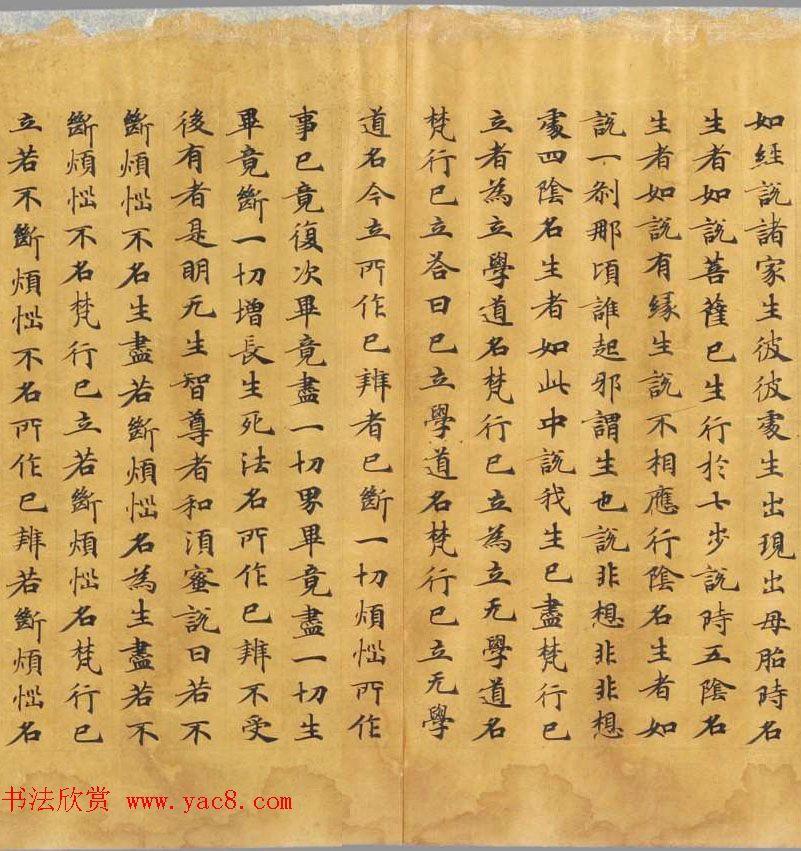 如經說諸家生彼彼處生出現出母胎時名
生者如說菩薩已生行於七步說時五陰名
生者如說有緣生說不相應行陰名生者如
說一剎那頃誰起邪謂生也說非想非非想
處四陰名生者如此中說我生已盡梵行已
立者為立學道名梵行已立為立无學道名
梵行已立荅曰已立學道名梵行已立无學
道名今立所作已辦者已斷一切煩惱所作
事已竟復次畢竟盡一切界畢竟盡一切生
畢竟斷一切增長生死法名所作已辦不受
後有者是明无生智尊者和須蜜說曰若不
斷煩惱不名生盡若斷煩惱名為生盡若不
斷煩惱不名梵行已立若斷煩惱名梵行已
立若不斷煩惱不名所作已辦若斷煩惱名
书法欣赏 www.yac8.com